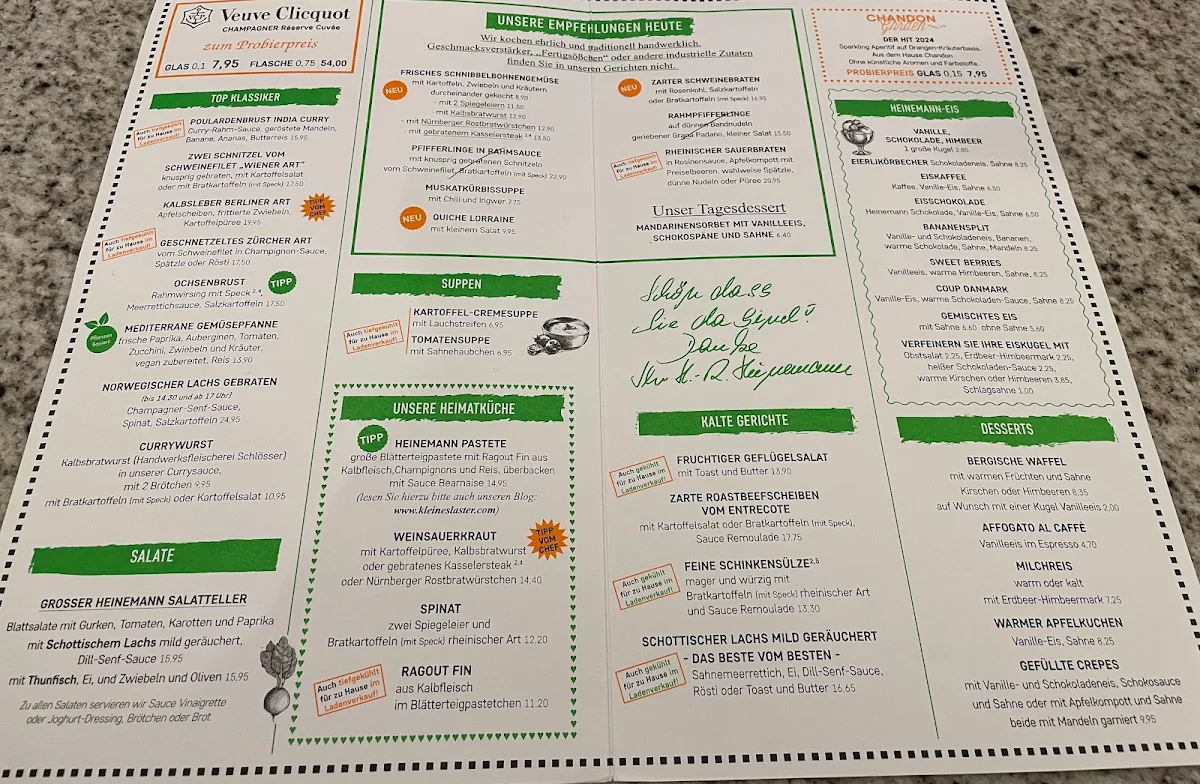 VCP
Veuve Clicquot
CHAMPAGNER Réserve Cuvée
zum Probierpreis
GLAS 0,1 7,95 FLASCHE 0,75 54,00
TOP KLASSIKER
Auch tiefgekühlt für zu Hause im Ladenverkauf!
POULARDENBRUST INDIA CURRY
Curry-Rahm-Sauce, geröstete Mandeln,
Banane, Ananas, Butterreis 15.95
ZWEI SCHNITZEL VOM
SCHWEINEFILET „WIENER ART"
knusprig gebraten, mit Kartoffelsalat
oder mit Bratkartoffeln (mit Speck) 17.50
KALBSLEBER BERLINER ART
Apfelscheiben, frittierte Zwiebeln,
Kartoffelpüree 19,95
TIPP VOM CHEF
Auch tiefgekühlt für zu Hause im Ladenverkauf!
GESCHNETZELTES ZÜRCHER ART
vom Schweinefilet in Champignon-Sauce,
Spätzle oder Rösti 17.50
OCHSENBRUST
Rahmwirsing mit Speck 2,4,
Meerrettichsauce, Salzkartoffeln 17.50
TIPP
Pflanzen Basiert
MEDITERRANE GEMÜSEPFANNE
frische Paprika, Auberginen, Tomaten,
Zucchini, Zwiebeln und Kräuter,
vegan zubereitet, Reis 13.90
NORWEGISCHER LACHS GEBRATEN
(bis 14.30 und ab 17 Uhr)
Champagner-Senf-Sauce,
Spinat, Salzkartoffeln 24,95
CURRYWURST
Kalbsbratwurst (Handwerksfleischerei Schlösser)
in unserer Currysauce,
mit 2 Brötchen 9.95
mit Bratkartoffeln (mit Speck) oder Kartoffelsalat 10.95
SALATE
GROSSER HEINEMANN SALATTELLER
Blattsalate mit Gurken, Tomaten, Karotten und Paprika
mit Schottischem Lachs mild geräuchert,
Dill-Senf-Sauce 15,95
mit Thunfisch, Ei, und Zwiebeln und Oliven 15,95
Zu allen Salaten servieren wir Sauce Vinaigrette
oder Joghurt-Dressing, Brötchen oder Brot
UNSERE EMPFEHLUNGEN HEUTE
Wir kochen ehrlich und traditionell handwerklich.
Geschmacksverstärker, „Fertigsößchen" oder andere industrielle Zutaten
finden Sie in unseren Gerichten nicht.
NEU
FRISCHES SCHNIBBELBOHNENGEMÜSE
mit Kartoffeln, Zwiebeln und Kräutern
durcheinander gekocht 8.90
- mit 2 Spiegeleiern 11.50
- mit Kalbsbratwurst 12.90
- mit Nürnberger Rostbratwürstchen 12.90
- mit gebratenem Kasselersteak 2,4 13.50
PFIFFERLINGE IN RAHMSAUCE
mit knusprig gebratenen Schnitzeln
vom Schweinefilet, Bratkartoffeln (mit Speck) 22,90
MUSKATKÜRBISSUPPE
mit Chili und Ingwer 7.75
NEU
QUICHE LORRAINE
mit kleinem Salat 9.95
NEU
ZARTER SCHWEINEBRATEN
mit Rosenkohl, Salzkartoffeln
oder Bratkartoffeln (mit Speck) 16.95
RAHMPFIFFERLINGE
auf dünnen Bandnudeln
geriebener Grana Padano, kleiner Salat 15.50
Auch tiefgekühlt für zu Hause im Ladenverkauf!
RHEINISCHER SAUERBRATEN
in Rosinensauce, Apfelkompott mit
Preiselbeeren, wahlweise Spätzle,
dünne Nudeln oder Püree 20,95
Unser Tagesdessert
MANDARINENSORBET MIT VANILLEEIS,
SCHOKOSPÄNE UND SAHNE 6.40
SUPPEN
Auch tiefgekühlt für zu Hause im Ladenverkauf!
KARTOFFEL-CREMESUPPE
mit Lauchstreifen 6,95
TOMATENSUPPE
mit Sahnehäubchen 6,95
Schön dass
Sie da sind!
Danke
Ihr H.-R. Heinemann
UNSERE HEIMATKÜCHE
TIPP
HEINEMANN PASTETE
große Blätterteigpastete mit Ragout Fin aus
Kalbfleisch,Champignons und Reis, überbacken
mit Sauce Bearnaise 14,95
(lesen Sie hierzu bitte auch unseren Blog:
www.kleineslaster.com)
WEINSAUERKRAUT
mit Kartoffelpüree, Kalbsbratwurst
oder gebratenes Kasselersteak 2,4
oder Nürnberger Rostbratwürstchen 14.40
TIPP VOM CHEF
SPINAT
zwei Spiegeleier und
Bratkartoffeln (mit Speck) rheinischer Art 12.20
Auch tiefgekühlt für zu Hause im Ladenverkauf!
RAGOUT FIN
aus Kalbfleisch
im Blätterteigpastetchen 11.20
KALTE GERICHTE
Auch gekühlt für zu Hause im Ladenverkauf!
FRUCHTIGER GEFLÜGELSALAT
mit Toast und Butter 13.90
ZARTE ROASTBEEFSCHEIBEN
VOM ENTRECOTE
mit Kartoffelsalat oder Bratkartoffeln (mit Speck),
Sauce Remoulade 17.75
Auch gekühlt für zu Hause im Ladenverkauf!
FEINE SCHINKENSÜLZE2,5
mager und würzig mit
Bratkartoffeln (mit Speck) rheinischer Art
und Sauce Remoulade 13.30
Auch gekühlt für zu Hause im Ladenverkauf!
SCHOTTISCHER LACHS MILD GERÄUCHERT
- DAS BESTE VOM BESTEN -
Sahnemeerrettich, Ei, Dill-Senf-Sauce,
Rösti oder Toast und Butter 16.65
CHANDON
Garden
DER HIT 2024
Sparkling Aperitif auf Orangen-Kräuterbasis.
Aus dem Hause Chandon.
Ohne künstliche Aromen und Farbstoffe.
PROBIERPREIS GLAS 0,15 7,95
HEINEMANN-EIS
VANILLE,
SCHOKOLADE, HIMBEER
1 große Kugel 2.60
EIERLIKÖRBECHER Schokoladeneis, Sahne 8.25
EISKAFFEE
Kaffee, Vanille-Eis, Sahne 6.50
EISSCHOKOLADE
Heinemann Schokolade, Vanille-Eis, Sahne 6,50
BANANENSPLIT
Vanille- und Schokoladeneis, Bananen,
warme Schokolade, Sahne, Mandeln 8.25
SWEET BERRIES
Vanilleeis, warme Himbeeren, Sahne, 8.25
COUP DANMARK
Vanille-Eis, warme Schokoladen-Sauce, Sahne 8,25
GEMISCHTES EIS
mit Sahne 6.60 ohne Sahne 5,60
VERFEINERN SIE IHRE EISKUGEL MIT
Obstsalat 2.25, Erdbeer-Himbeermark 2.25,
heißer Schokoladen-Sauce 2.25,
warme Kirschen oder Himbeeren 3,85,
Schlagsahne 1.00
DESSERTS
BERGISCHE WAFFEL
mit warmen Früchten und Sahne
Kirschen oder Himbeeren 8,35
auf Wunsch mit einer Kugel Vanilleeis 2,00
AFFOGATO AL CAFFÈ
Vanilleeis im Espresso 4.70
MILCHREIS
warm oder kalt
mit Erdbeer-Himbeermark 7,25
WARMER APFELKUCHEN
Vanille-Eis, Sahne 8.25
GEFÜLLTE CREPES
mit Vanille- und Schokoladeneis, Schokosauce
und Sahne oder mit Apfelkompott und Sahne
beide mit Mandeln garniert 9.95